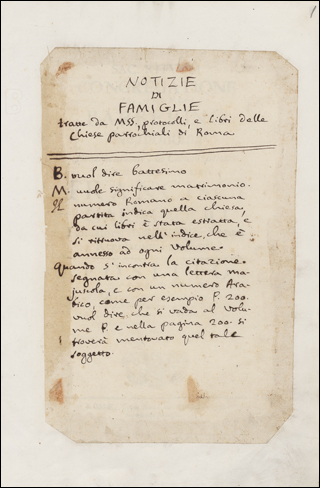 NOTIZIE
DI
FAMIGLIE
tratte da MSS, protocolli, e libri delle
Chiese parrochiali di Roma
B. vuol dire battesimo
M. vuole significare matrimonio.
Il numero Romano a ciascuna
partita indica quella chiesa,
da cui libri è stata estratta, e
si ritruova nell'indice, che è
annesso ad ogni Volume.
Quando s'incontra la citazione
segnata con una lettera ma-
juscola, e con un numero Ara-
tico, come per esempio P. 200.
vuol dire, che si vada al Volu-
me P. e nella pagina 200. si
troverà mentovato quel tale
soggetto.